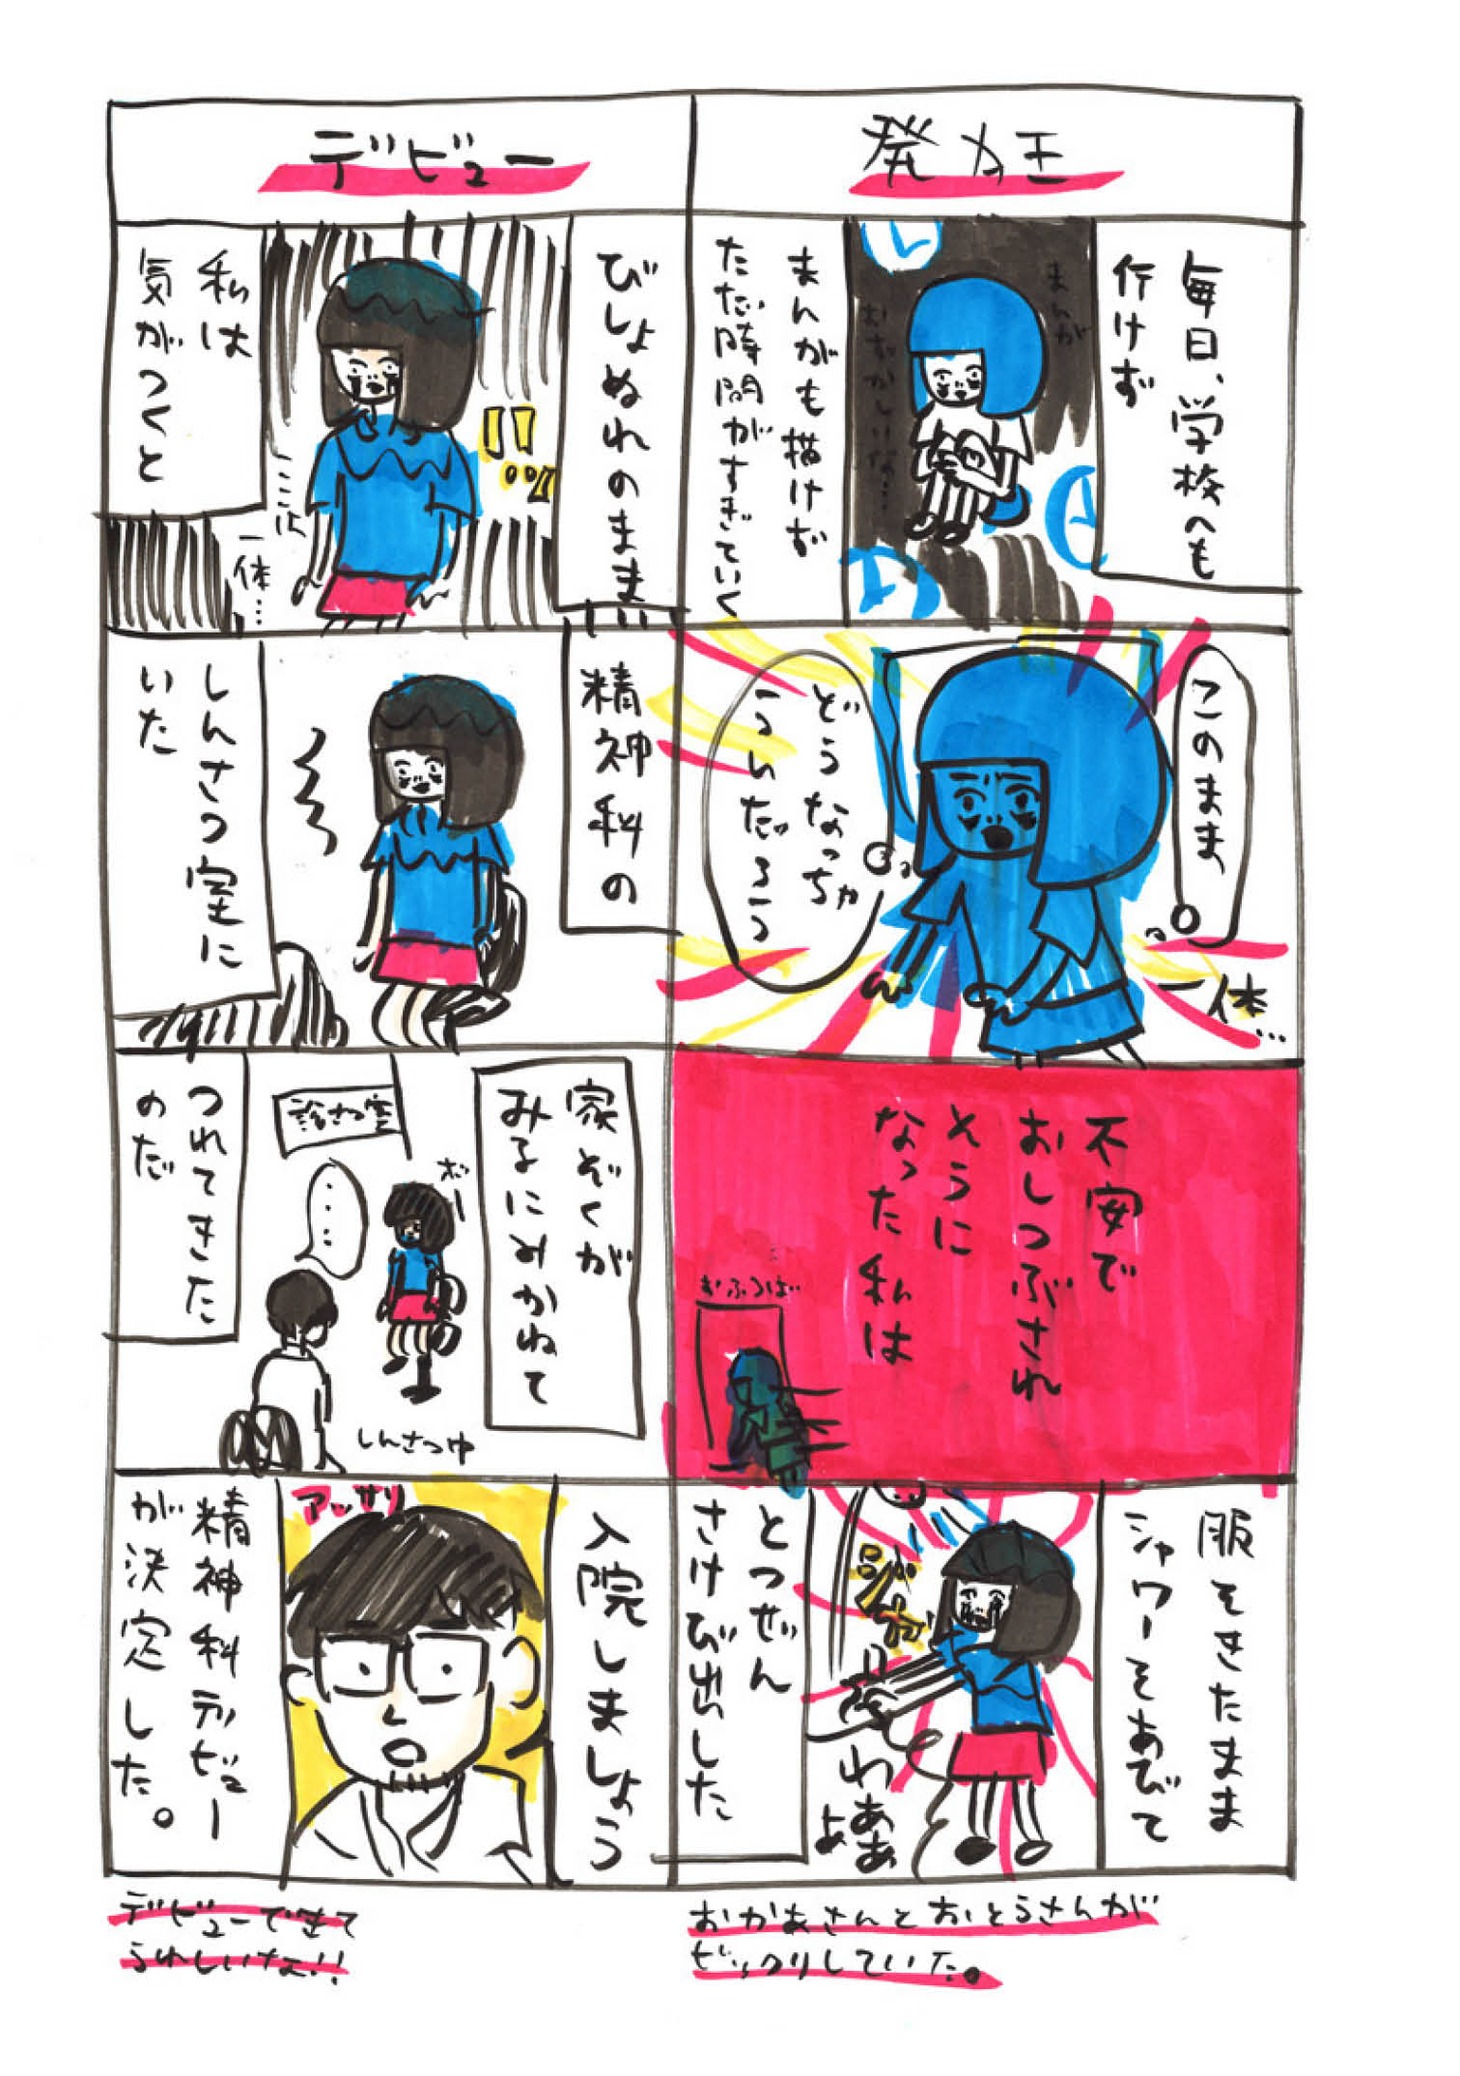 発狂
毎日、学校へも
行けず
まんがも描けず
ただ時間がすぎていく
まんが
むずかしいな…
このまま
どうなっちゃ
うんだろう
一体…
不安で
おしつぶされ
そうに
なった私は
おふろば
服をきたまま
シャワーをあびて
とつぜん
さけび出した
わああ
あ
おかあさんとおとうさんが
ビックリしていた。
デビュー
びしょぬれのまま
私は
気がつくと
ここは
一体…
精神科の
しんさつ室に
いた
家ぞくが
みるにみかねて
つれてきた
のだ
診さつ室
ボー
……
しんさつ中
入院しましょう
アッサリ
精神科デビュー
が決定した。
デビューできて
うれしいな!!